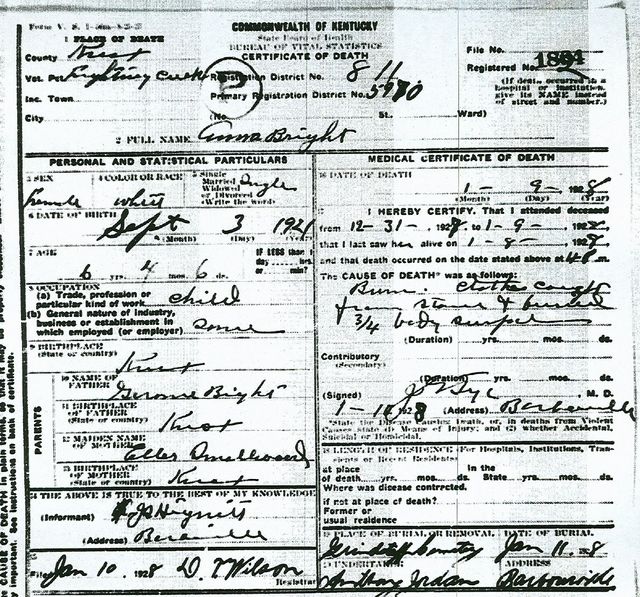 Form V. S. 1
COMMONWEALTH OF KENTUCKY
State Board of Health
BUREAU OF VITAL STATISTICS
CERTIFICATE OF DEATH
1 PLACE OF DEATH
County Knox
Vot. Pct
Inc. Town
City
Registration District No. 811
Primary Registration District No. 5980
(No. St., Ward)
File No.
Registered No.
(If death occurred in a hospital or institution, give its NAME instead of street and number.)
2 FULL NAME Anna Bright
PERSONAL AND STATISTICAL PARTICULARS
3 SEX
Female
4 COLOR OR RACE
white
5 Single
Married
Widowed
or Divorced
(Write the word)
Single
6 DATE OF BIRTH
Sept 3 1921
(Month) (Day) (Year)
7 AGE
6 yrs. 4 mos. 6 ds.
IF LESS than
1 day.....hrs.
or.....min?
8 OCCUPATION
(a) Trade, profession or
particular kind of work child
(b) General nature of industry,
business or establishment in
which employed (or employer)
9 BIRTHPLACE
(State or country)
Knox
PARENTS
10 NAME OF
FATHER
Gerome Bright
11 BIRTHPLACE
OF FATHER
(State or country)
Knox
12 MAIDEN NAME
OF MOTHER
Ellen Smallwood
13 BIRTHPLACE
OF MOTHER
(State or country)
Knox
14 THE ABOVE IS TRUE TO THE BEST OF MY KNOWLEDGE
(Informant)
(Address)
15
Filed Jan 10 1928 D. T. Wilson
Registrar
MEDICAL CERTIFICATE OF DEATH
16 DATE OF DEATH
1- 9- 1928
(Month) (Day) (Year)
17 I HEREBY CERTIFY, That I attended deceased
from 12-31-1927, to 1-9-1928
that I last saw her alive on 1-8-1928
and that death occurred on the date stated above at 4 P. m.
The CAUSE OF DEATH* was as follows:
Burn. Clothes caught
from stove & burned
3/4 body surface
(Duration) yrs. mos. ds.
Contributory
(Secondary)
(Duration) yrs. mos. ds.
(Signed) M. D.
1-10 1928 (Address) Barbourville
*State the Disease Causing Death, or, in deaths from Violent
Causes state (1) Means of Injury; and (2) whether Accidental,
Suicidal or Homicidal.
18 LENGTH OF RESIDENCE (For Hospitals, Institutions, Transients
or Recent Residents)
at place In the
of death.....yrs.....mos.....ds. State.....yrs.....mos.....ds.
Where was disease contracted,
if not at place of death?
Former or
usual residence
19 PLACE OF BURIAL OR REMOVAL DATE OF BURIAL
Cemetery Jan 11 1928
20 UNDERTAKER ADDRESS
Anthony Jordan Barbourville
CAUSE OF DEATH in plain terms, so that it may be properly
important. See instructions on back of certificate.